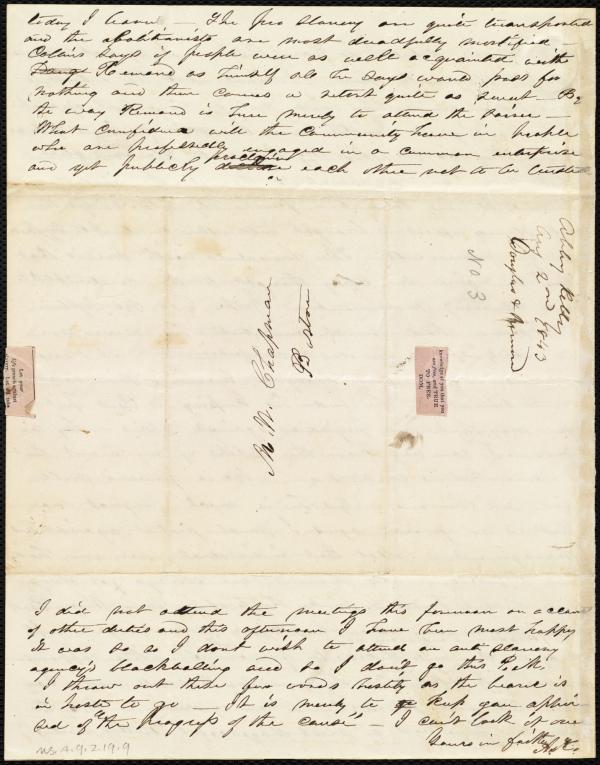 today I leave — The pro slavery are quite transported
and the abolitionists are most dreadfully mortified —
Collins says if people were as well acquainted with
Remond as himself all he says would pass for
nothing and then comes a retort quite as sweet — By
the way Remond is here merely to attend the
What confidence will the Community have in people
who are professedly engaged in a common enterprise
and yet publicly proclaim each other not to be trusted
Abby Kelley
Aug 2nd 1843
Douglas & Remond
No 3
M. W. Chapman
Boston
Let your
life preach against
knowledge of you that you
are fine, and TRUE
TO FREE-
DOM.
I did not attend the meetings this forenoon on account
of other duties and this afternoon I have been most happy
it was so as I dont wish to attend an anti slavery
agency's blackballing and so I don't go this P.M.
I throw out these few words hastily as the bearer is
in haste to go — It is merely to keep you appri-
sed of "the progress of the cause" — I can't look it over
Yours in faith A.K.
Ms.A.9.2.19.9